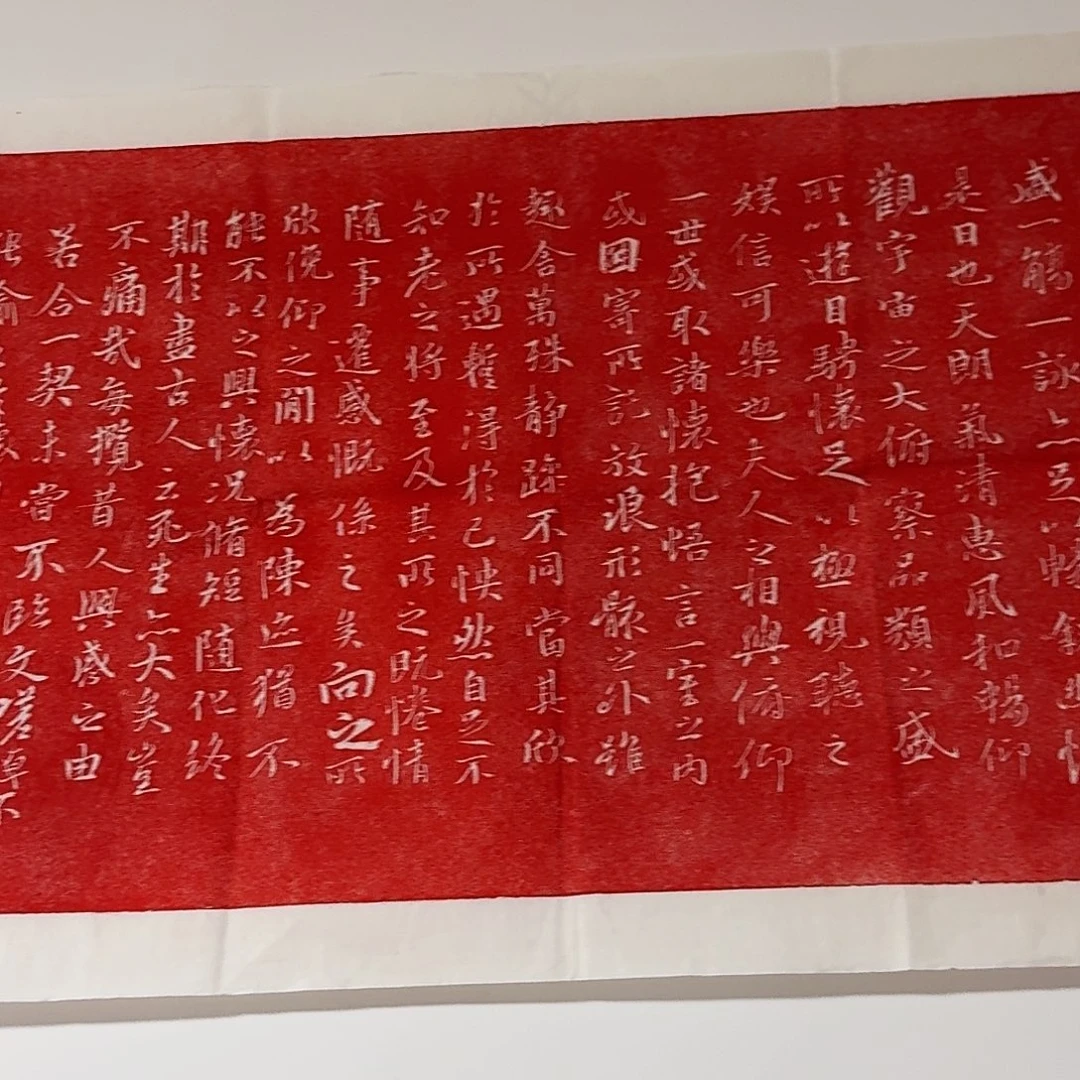 盛一觴一詠亦足以暢敘幽情
是日也天朗氣清惠風和暢仰
觀宇宙之大俯察品類之盛
所以遊目騁懷足以極視聽之
娛信可樂也夫人之相與俯仰
一世或取諸懷抱悟言一室之內
或因寄所託放浪形骸之外雖
趣舍萬殊靜躁不同當其欣
於所遇暫得於己怏然自足不
知老之將至及其所之既惓情
隨事遷感慨係之矣向之所
欣俛仰之閒以為陳迹猶不
能不以之興懷況脩短隨化終
期於盡古人云死生亦大矣豈
不痛哉每攬昔人興感之由
若合一契未嘗不臨文嗟悼不
能喻之於懷